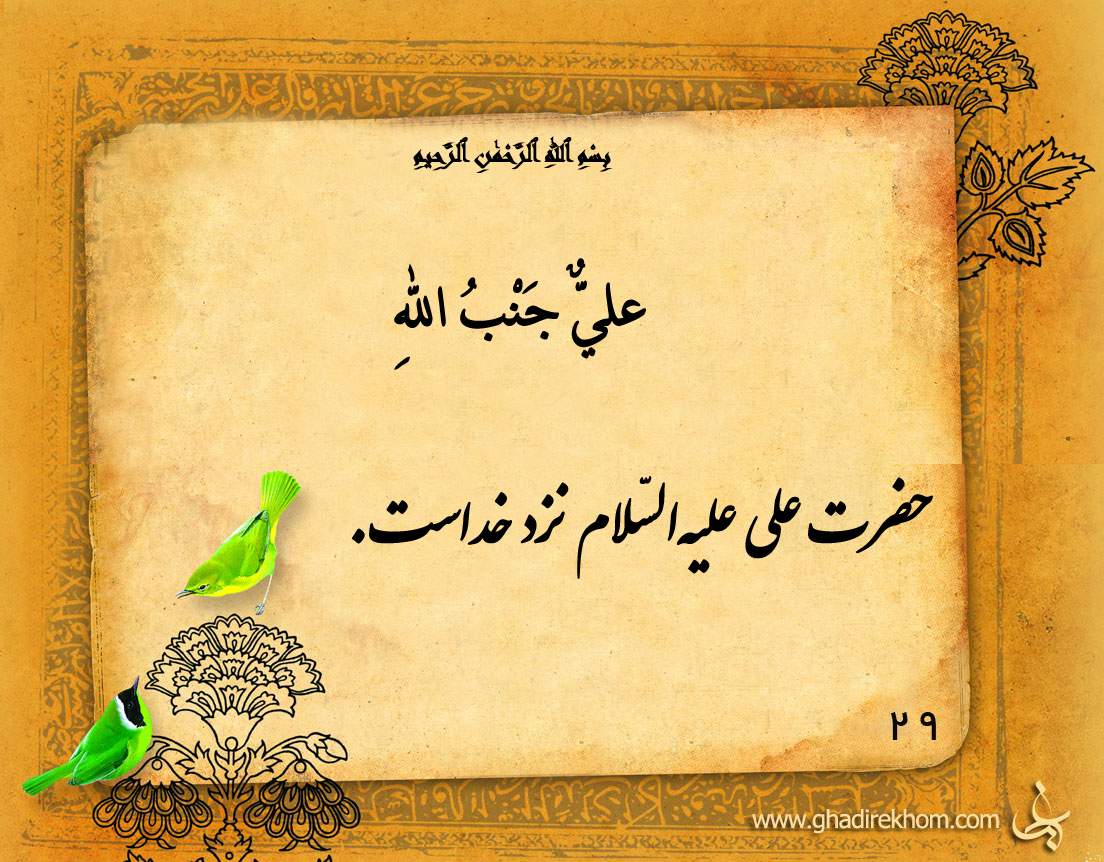 بِسْمِ ٱللَّهِ ٱلرَّحْمَٰنِ ٱلرَّحِيمِ
عليٌّ جَنْبُ اللّٰهِ
حضرت علی علیه‌السّلام نزد خداست.
۲۹
www.ghadirekhom.com